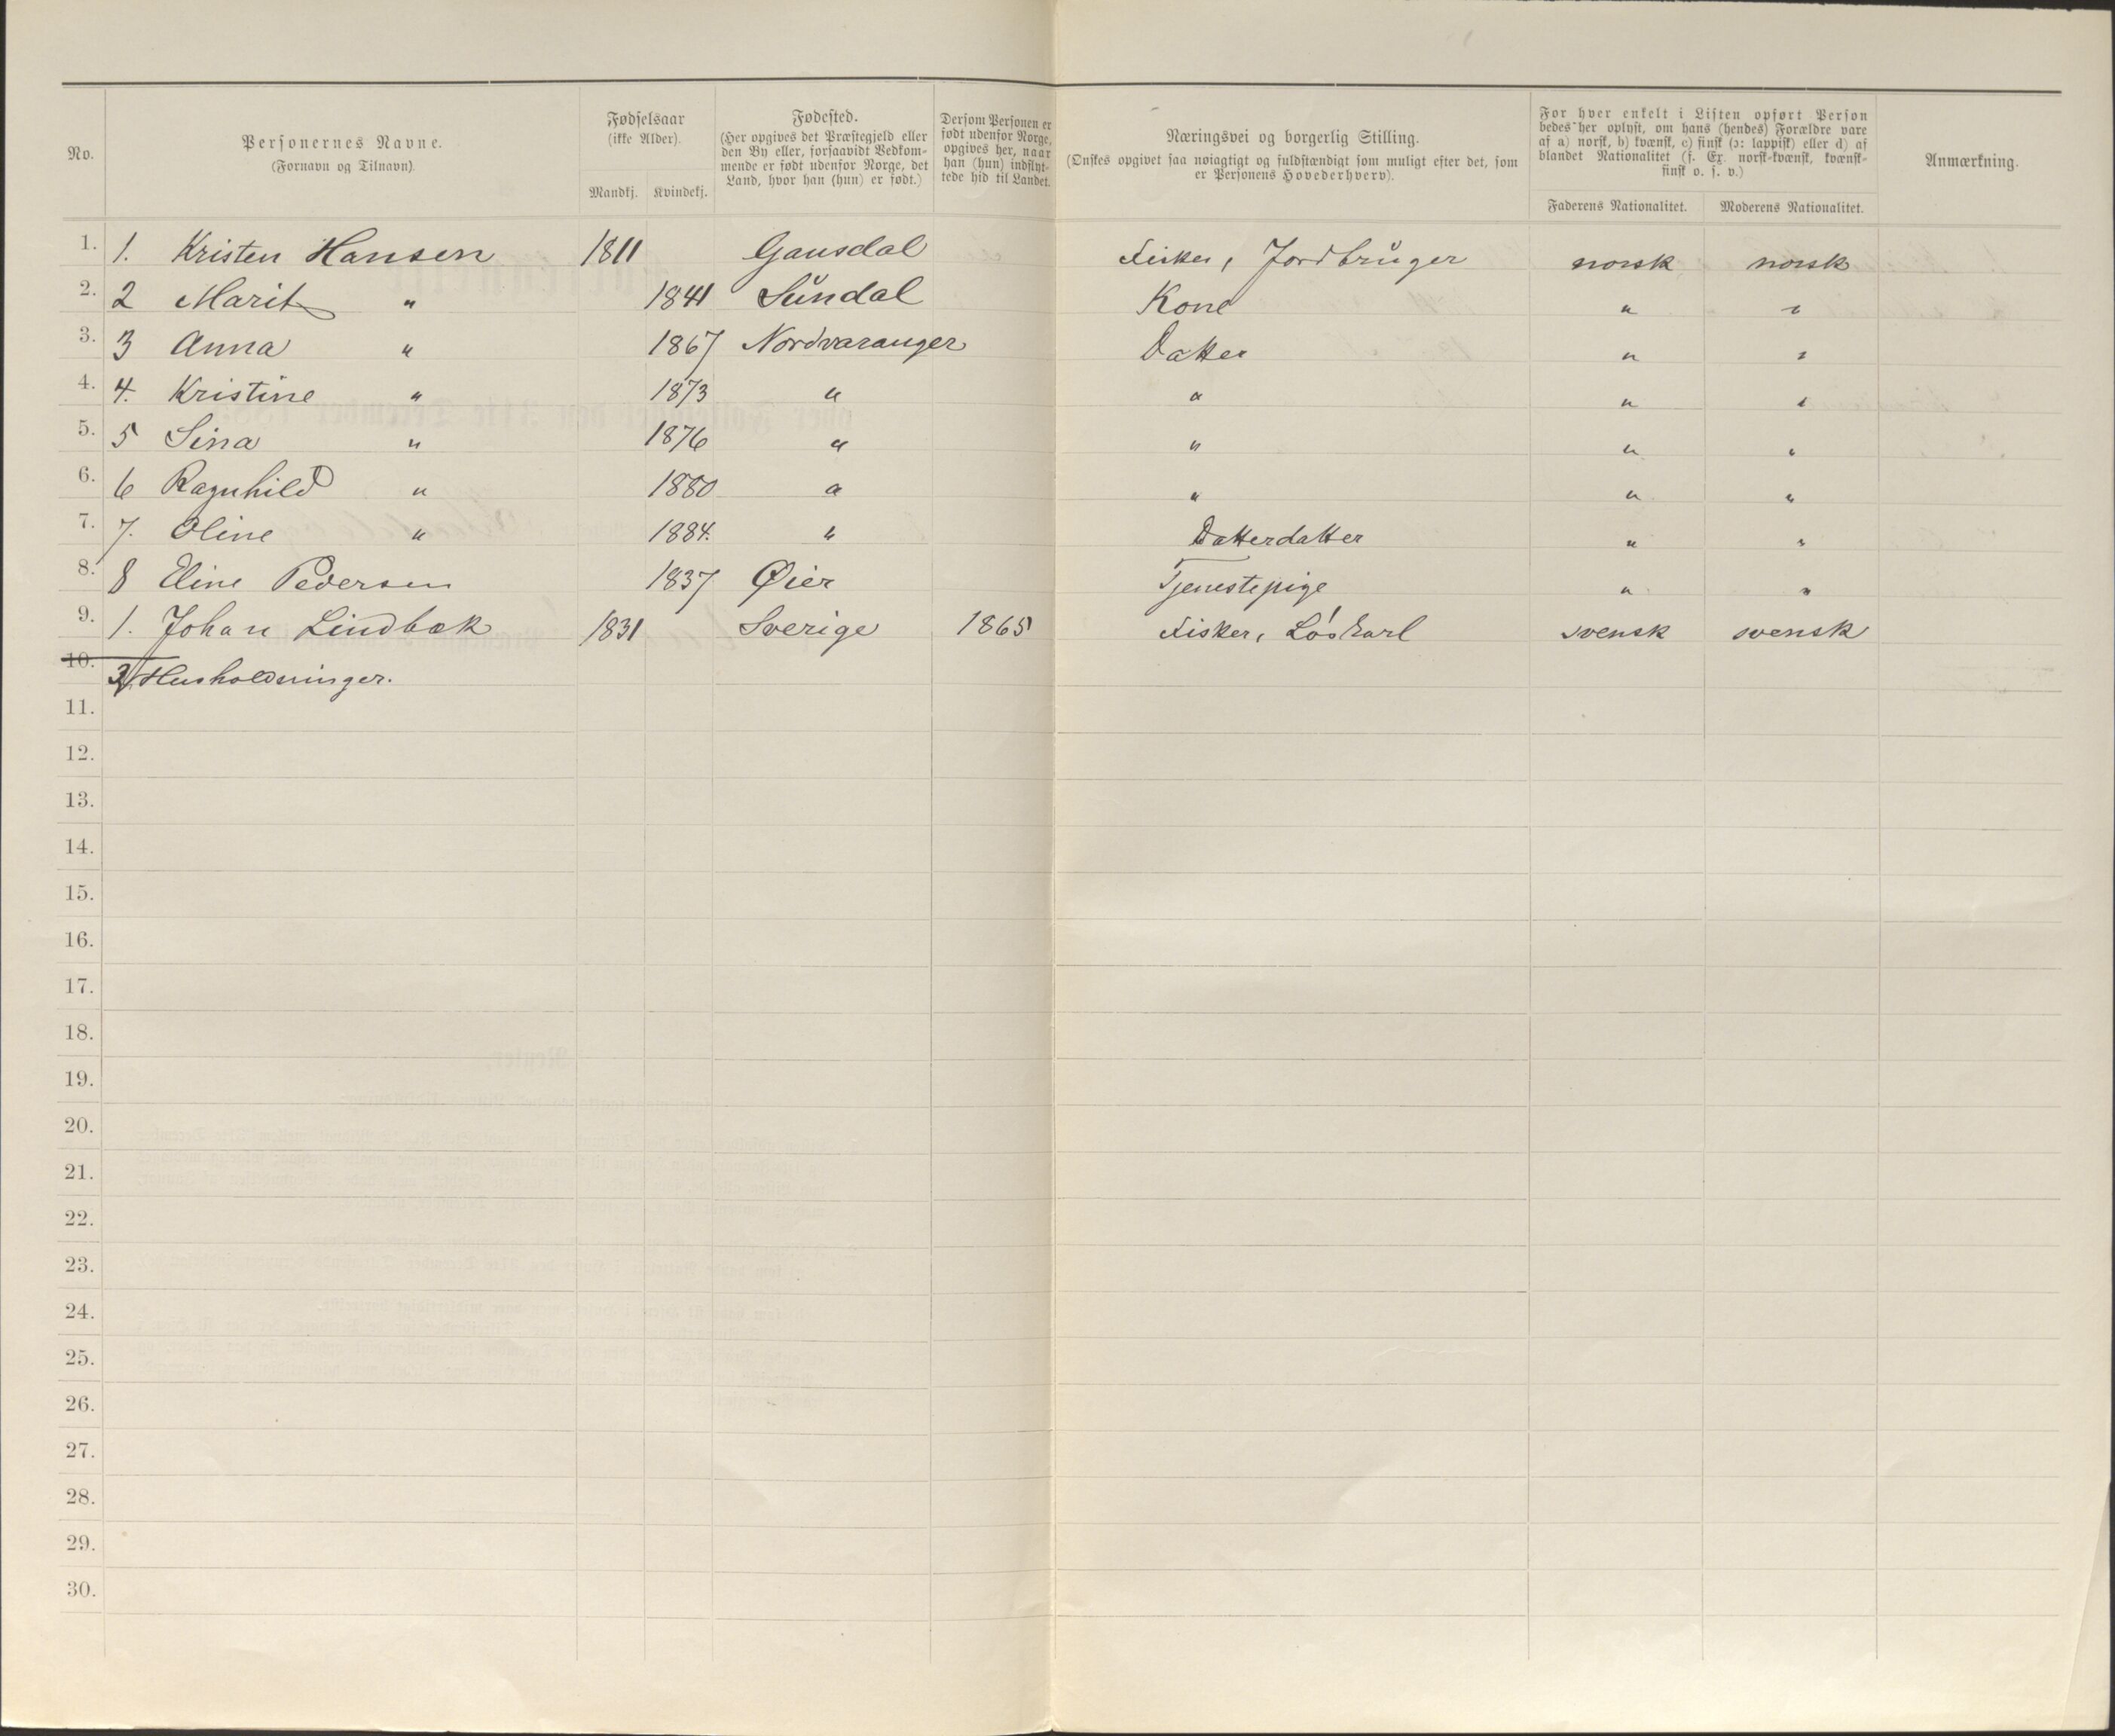 No.
Personernes Navne.
(Fornavn og Tilnavn)
Fødselsaar
(ikke Alder).
Mandkj. Kvindekj.
Fødested.
(Her opgives det Præstegjeld eller
den By eller, forsaavidt Vedkom-
mende er født udenfor Norge, det
Land, hvor han (hun) er født.)
Dersom Personen er
født udenfor Norge,
opgives her, naar
han (hun) indflyt-
tede hid til Landet.
Næringsvei og borgerlig Stilling.
(Ønskes opgivet saa nøiagtigt og fuldstændigt som muligt efter det, som
er Personens Hovederhverv).
For hver enkelt i Listen opført Person
bedes her oplyst, om hans (hendes) Forældre vare
af a) norsk, b) kvænsk, c) finsk (ɔ: lappisk) eller d) af
blandet Nationalitet (f. Ex. norsk-kvænsk, kvænsk-
finsk o. s. v.)
Faderens Nationalitet. Moderens Nationalitet.
Anmærkning.
1. 1. Kristen Hansen 1811 Gausdal Fisker, Jordbruger norsk norsk
2. 2 Marit " 1841 Sundal Kone " "
3. 3 Anna " 1867 Nordvaranger Datter " "
4. 4. Kristine " 1873 " " " "
5. 5 Sina " 1876 " " " "
6. 6 Ragnhild " 1880 " " " "
7. 7. Oline " 1884. " Datterdatter " "
8. 8 Eline Pedersen 1837 Øier Tjenestepige " "
9. 1. Johan Lindbæk 1831 Sverige 1865 Fisker, Løskarl svensk svensk
10. Husholdninger.
11.
12.
13.
14.
15.
16.
17.
18.
19.
20.
21.
22.
23.
24.
25.
26.
27.
28.
29.
30.